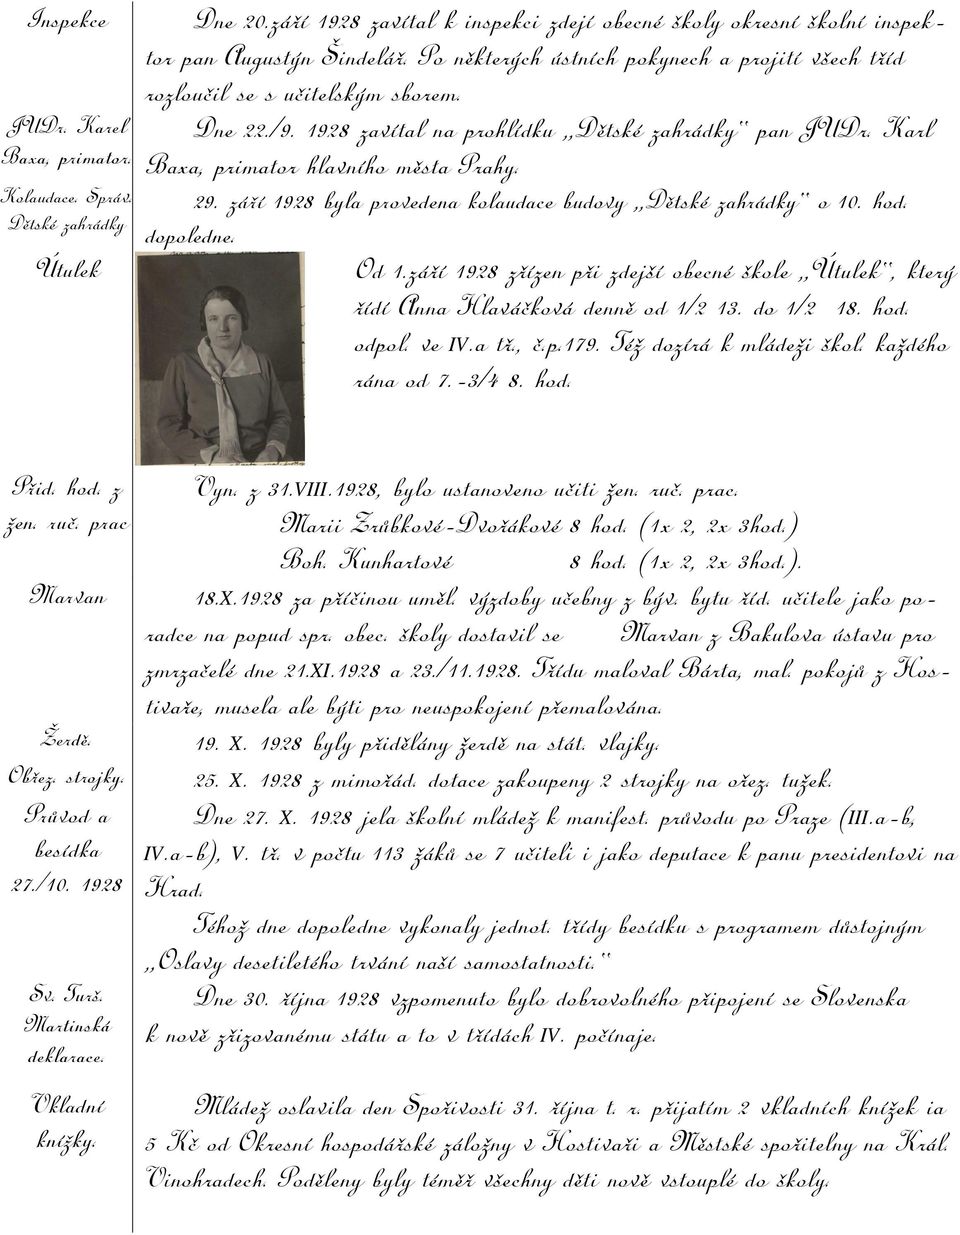 Inspekce
Dne 20.září 1928 zavítal k inspekci zdejí obecné školy okresní školní inspek-
tor pan Augustýn Šindelář. Po některých ústních pokynech a projití všech tříd
rozloučil se s učitelským sborem.
JUDr. Karel
Baxa, primator.
Dne 22./9. 1928 zavítal na prohlídku „Dětské zahrádky“ pan JUDr. Karl
Baxa, primator hlavního města Prahy.
Kolaudace. Správ.
Dětské zahrádky
29. září 1928 byla provedena kolaudace budovy „Dětské zahrádky“ o 10. hod.
dopoledne.
Útulek
Od 1.září 1928 zřízen při zdejší obecné škole „Útulek“, který
řídí Anna Hlaváčková denně od 1/2 13. do 1/2 18. hod.
odpol. ve IV.a tř., č.p.179. Též dozírá k mládeži škol. každého
rána od 7. -3/4 8. hod.
Přid. hod. z
žen. ruč. prac
Vyn. z 31.VIII.1928, bylo ustanoveno učiti žen. ruč. prac.
Marii Zrůbkové-Dvořákové 8 hod. (1x 2, 2x 3hod.)
Boh. Kunhartové 8 hod. (1x 2, 2x 3hod.).
Marvan
18.X.1928 za příčinou uměl. výzdoby učebny z býv. bytu říd. učitele jako po-
radce na popud spr. obec. školy dostavil se Marvan z Bakulova ústavu pro
zmrzačelé dne 21.XI.1928 a 23./11.1928. Třídu maloval Bárta, mal. pokojů z Hos-
tivaře; musela ale býti pro neuspokojení přemalována.
Žerdě.
19. X. 1928 byly přidělány žerdě na stát. vlajky.
Obřez. strojky.
25. X. 1928 z mimořád. dotace zakoupeny 2 strojky na ořez. tužek.
Průvod a
besídka
27./10. 1928
Dne 27. X. 1928 jela školní mládež k manifest. průvodu po Praze (III.a-b,
IV.a-b), V. tř. v počtu 113 žáků se 7 učiteli i jako deputace k panu presidentovi na
Hrad.
Téhož dne dopoledne vykonaly jednot. třídy besídku s programem důstojným
„Oslavy desetiletého trvání naší samostatnosti.“
Sv. Turš.
Martinská
deklarace.
Dne 30. října 1928 vzpomenuto bylo dobrovolného připojení se Slovenska
k nově zřizovanému státu a to v třídách IV. počínaje.
Vkladní
knížky.
Mládež oslavila den Spořivosti 31. října t. r. přijatím 2 vkladních knížek ia
5 Kč od Okresní hospodářské záložny v Hostivaři a Městské spořitelny na Král.
Vinohradech. Poděleny byly téměř všechny děti nově vstouplé do školy.